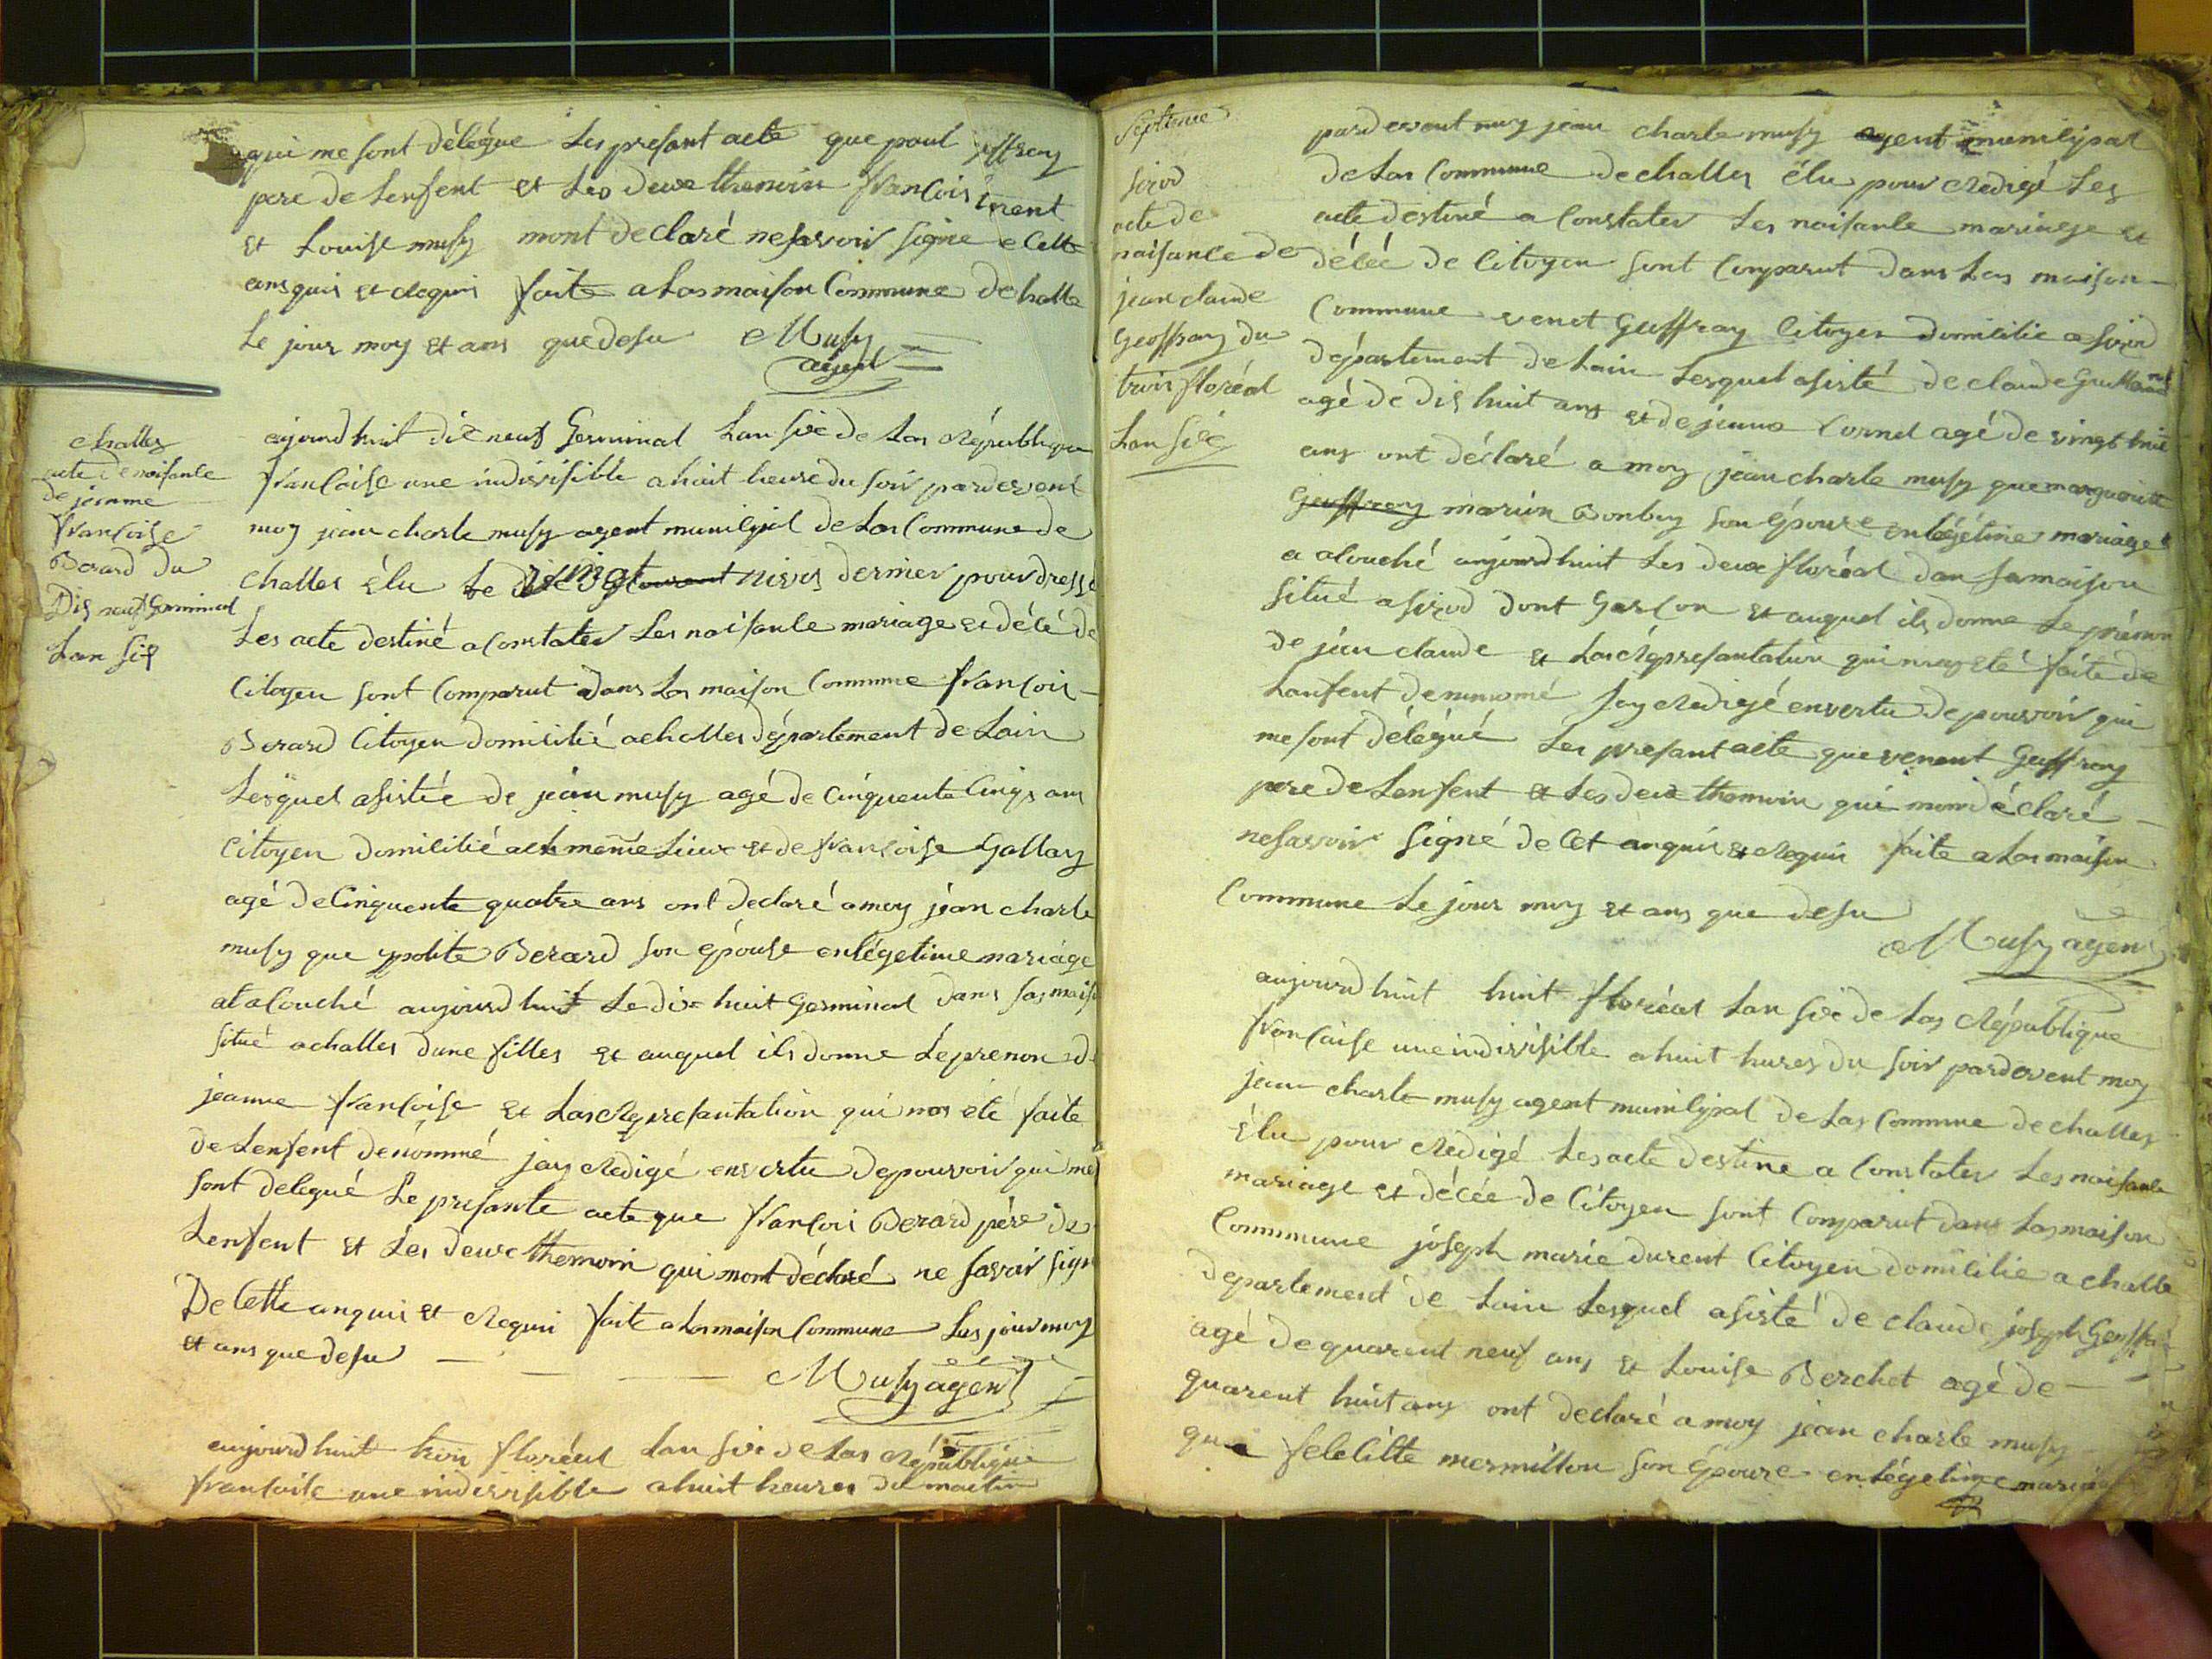 qui me sont délégue les presant acte que paul jeffray
pere de lenfent et les deux themoin francois
et Louise musy mont declaré ne savoir signe
anquis et requis faite a las maison Commune de halle
le jour moy et ans que desu Musy
agent
challes
acte de naisance
de jeanne
francoise
Berard du
Dis neuf Germinal
Lan six
aujourdhuit dix neuf Germinal Lan six de las République
francaise une indivisible a huit heure du soir pardevent
moy jean charle musy agent municipal de las Commune de
challes élu le vingt nivos dernier pour dressé
Les acte destiné a Constater les naisance mariage et décé de
Citoyen sont Comparut dans las maison Commune francois
Berard Citoyen domicilié a challes département de Lain
Lesquel asistée de jéan musy agé de Cinquente Cinqs ans
Citoyen domicilié au même Lieux et de francoise Gallay
agé de Cinquente quatre ans ont declaré a moy jéan charle
musy que ypolite Berard son épouse en légetime mariáge
at acouché aujourdhuit Le dix huit Germinal dans sas mais
situé a challes dune filles et auquel ils donne Le prenon d
jeanne francoise et las Représantation qui mas été faite
de Lenfent denommé jay Redigé en vertu de pouvoir qui me
sont delegué Le présante acte que francois Berard pére de
Lenfent et Les deux themoin qui mont déclaré ne savoir sign
De Cette anquis et Requis faite a las maison Commune Les jour moy
et ans que desu
Musy agent
aujourdhuit trois floréal Lan six de las République
francaise une indivisible a huit heures du matin
Septeme
sirod
acte de
naisance de
jean claude
Geoffray du
trois floréal
Lan six
pardevant moy jean charle musy agent municipal
de las Commune de challes élu pour Redigé Les
acte destiné a Constater Les naisance mariage et
décée de Citoyen sont Comparut dans las maison
Commune venet Geffray Citoyen domicilié a sirod
département de Lain Lesquel asisté de claude
agé de dis huit ans et de jeanne Cornel agé de vingt huit
ans ont déclaré a moy jean charle musy que marguerite
Geffray mariin Bonbuy son épouse en légétime mariage
a acouché aujourdhuit Les deux floréal dan sa maison
situé a sirod dont Garcon et auquel ils donne Le prénom
de jéan claude et las Représantation qui mas eté faite de
Lanfent denommé jay Redigé en vertu de pouvoir qui
me sont délégué Les presant acte que venent Geffray
pere de Lenfent et Les deux themoin qui mon déclaré
ne savoir signé de Cet anquis et Requis faite a las maison
Commune Le jour moy et ans que desu
Musy agent
aujourdhuit huit floréal Lan six de las République
francaise une indivisible a huit hures du soir pardevent moy
jean charle musy agent municipal de las Commune de challes
élu pour Rédigé Les acte destiné a Constater Les naisance
mariage et décée de Citoyen sont Comparut dans las maison
Commune jóseph marie durent Citoyen domicilie a challe
departement de Lain Lesquel asisté de claude joseph Geuffra
agé de quarent neuf ans et Louise Berchet agé de
quarent huit ans ont declaré a moy jean charle musy
que felicitte mermillon son épouse en légetime maria